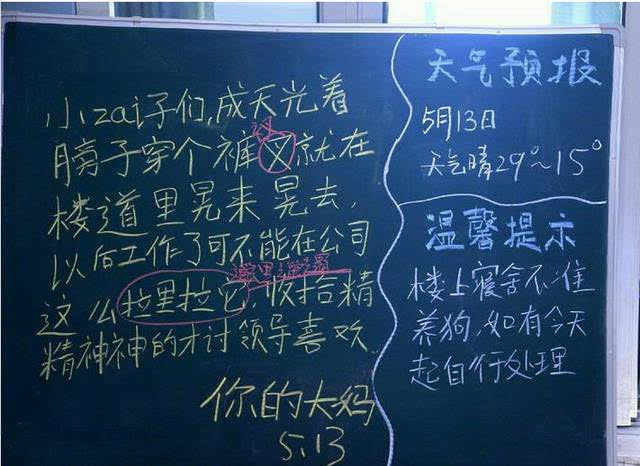 小zai子们,成天光着
膀子穿个裤
衩
叉就在
楼道里晃来晃去,
以后工作了可不能在公司
邋里邋遢
这么拉里拉它,收拾精
精神神的才讨领导喜欢
你的大妈
5.13
天气预报
5月13日
天气晴29°~15°
温馨提示
楼上寝舍不准
养狗,如有今天
起自行处理